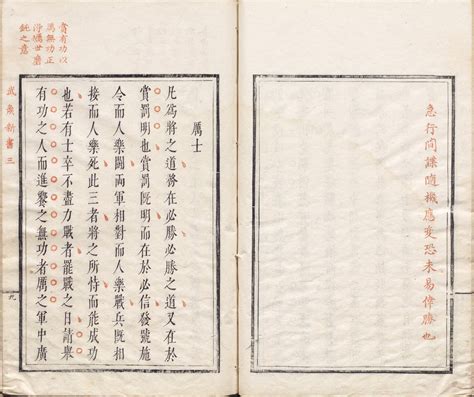 急行間諜隨機應变恐未易偉勝也
賞有功以
厲無功正
得厲世磨
鈍之意
厲士
凡為將之道務在必勝必勝之道又在於
賞罰明也賞罰既明而在於必信發號施
令而人樂聞兩軍相對而人樂戰兵既相
接而人樂死此三者將之所恃而能成功
也若有士卒不盡力戰者罷戰之日請舉
有功之人而進饗之無功者厲之軍中廣
武新書三
九